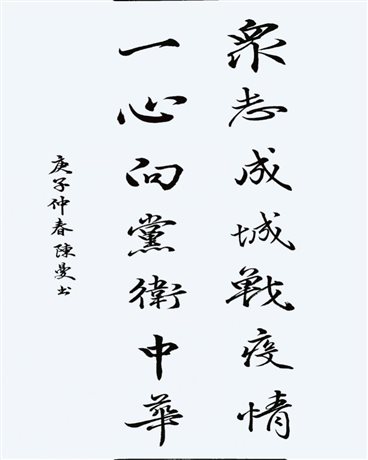 衆志成城戰疫情
一心向黨衛中華
庚子仲春陳曼書